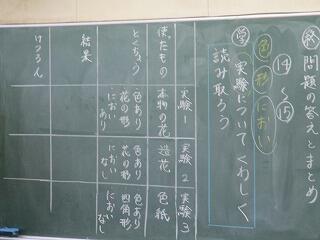 終 問題の答えとまとめ
⑭〜⑮
色 形 におい
学 実験についてくわしく
読み取ろう
実験1
実験2
実験3
使ったもの
本物の花
造花
色紙
とくちょう
色あり
花の形
におい
あり
色あり
花の形
におい
なし
色あり
四角形
におい
なし
結果
けつろん